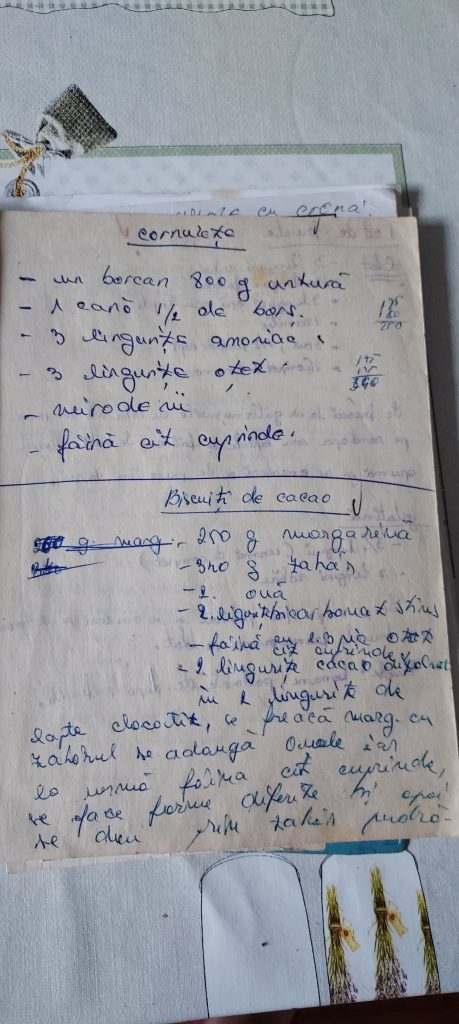 cu crema.
cornulețe
- un borcan 800 g untură
- 1 cană 1/2 de borș.
- 3 lingurițe amoniac
- 3 lingurițe oțet.
- mirodenii
- făină cît cuprinde.
175
340
Biscuiți de cacao
g. marg. - 250 g margarină
- 340 g zahăr
- 2 ouă
- 2 lingurițe bicarbonat stins
cu oțet
- făină cît cuprinde
- 2 lingurițe cacao dizolvate
în 2 lingurițe de
lapte clocotit, se freacă marg. cu
zahărul se adaugă ouăle iar
la urmă făina cît cuprinde,
se face forme diferite și apoi
se dau prin zahăr